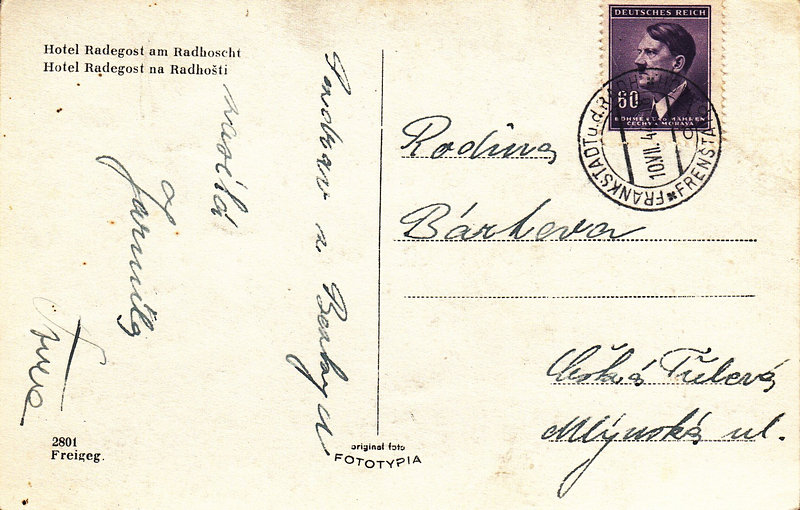 Hotel Radegost am Radhoscht
Hotel Radegost na Radhošti
Pozdrav z Beskyd
zasílá
Jarmila
2801
Freigeg.
original foto
FOTOTYPIA
DEUTSCHES REICH
60
BÖHMEN UND MÄHREN
ČECHY A MORAVA
FRANKSTADT u.d.
FRENŠTÁT
10.VII.4
Rodina
Bártkova
Česká Třebová
Mlýnská ul.